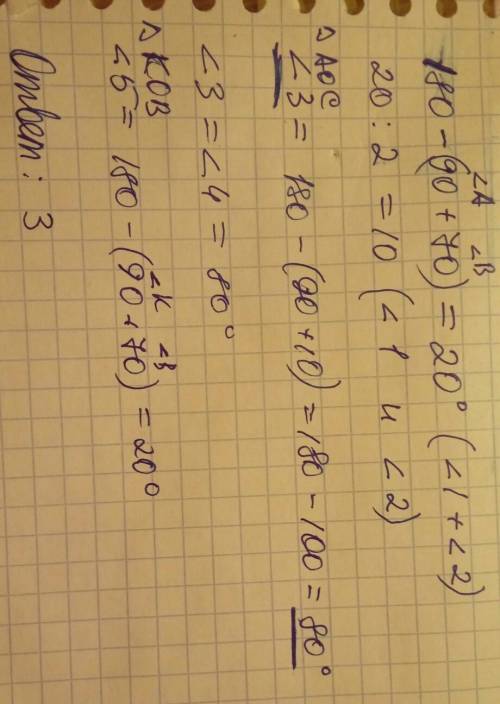 ∠A ∠B
180 - (90 + 70) = 20° (∠1 + ∠2)
20 : 2 = 10 (∠1 и ∠2)
△ AOC
∠3 = 180 - (90 + 10) = 180 - 100 = 80°
∠3 = ∠4 = 80°
△ KOB ∠K ∠B
∠5 = 180 - (90 + 70) = 20°
Ответ: 3